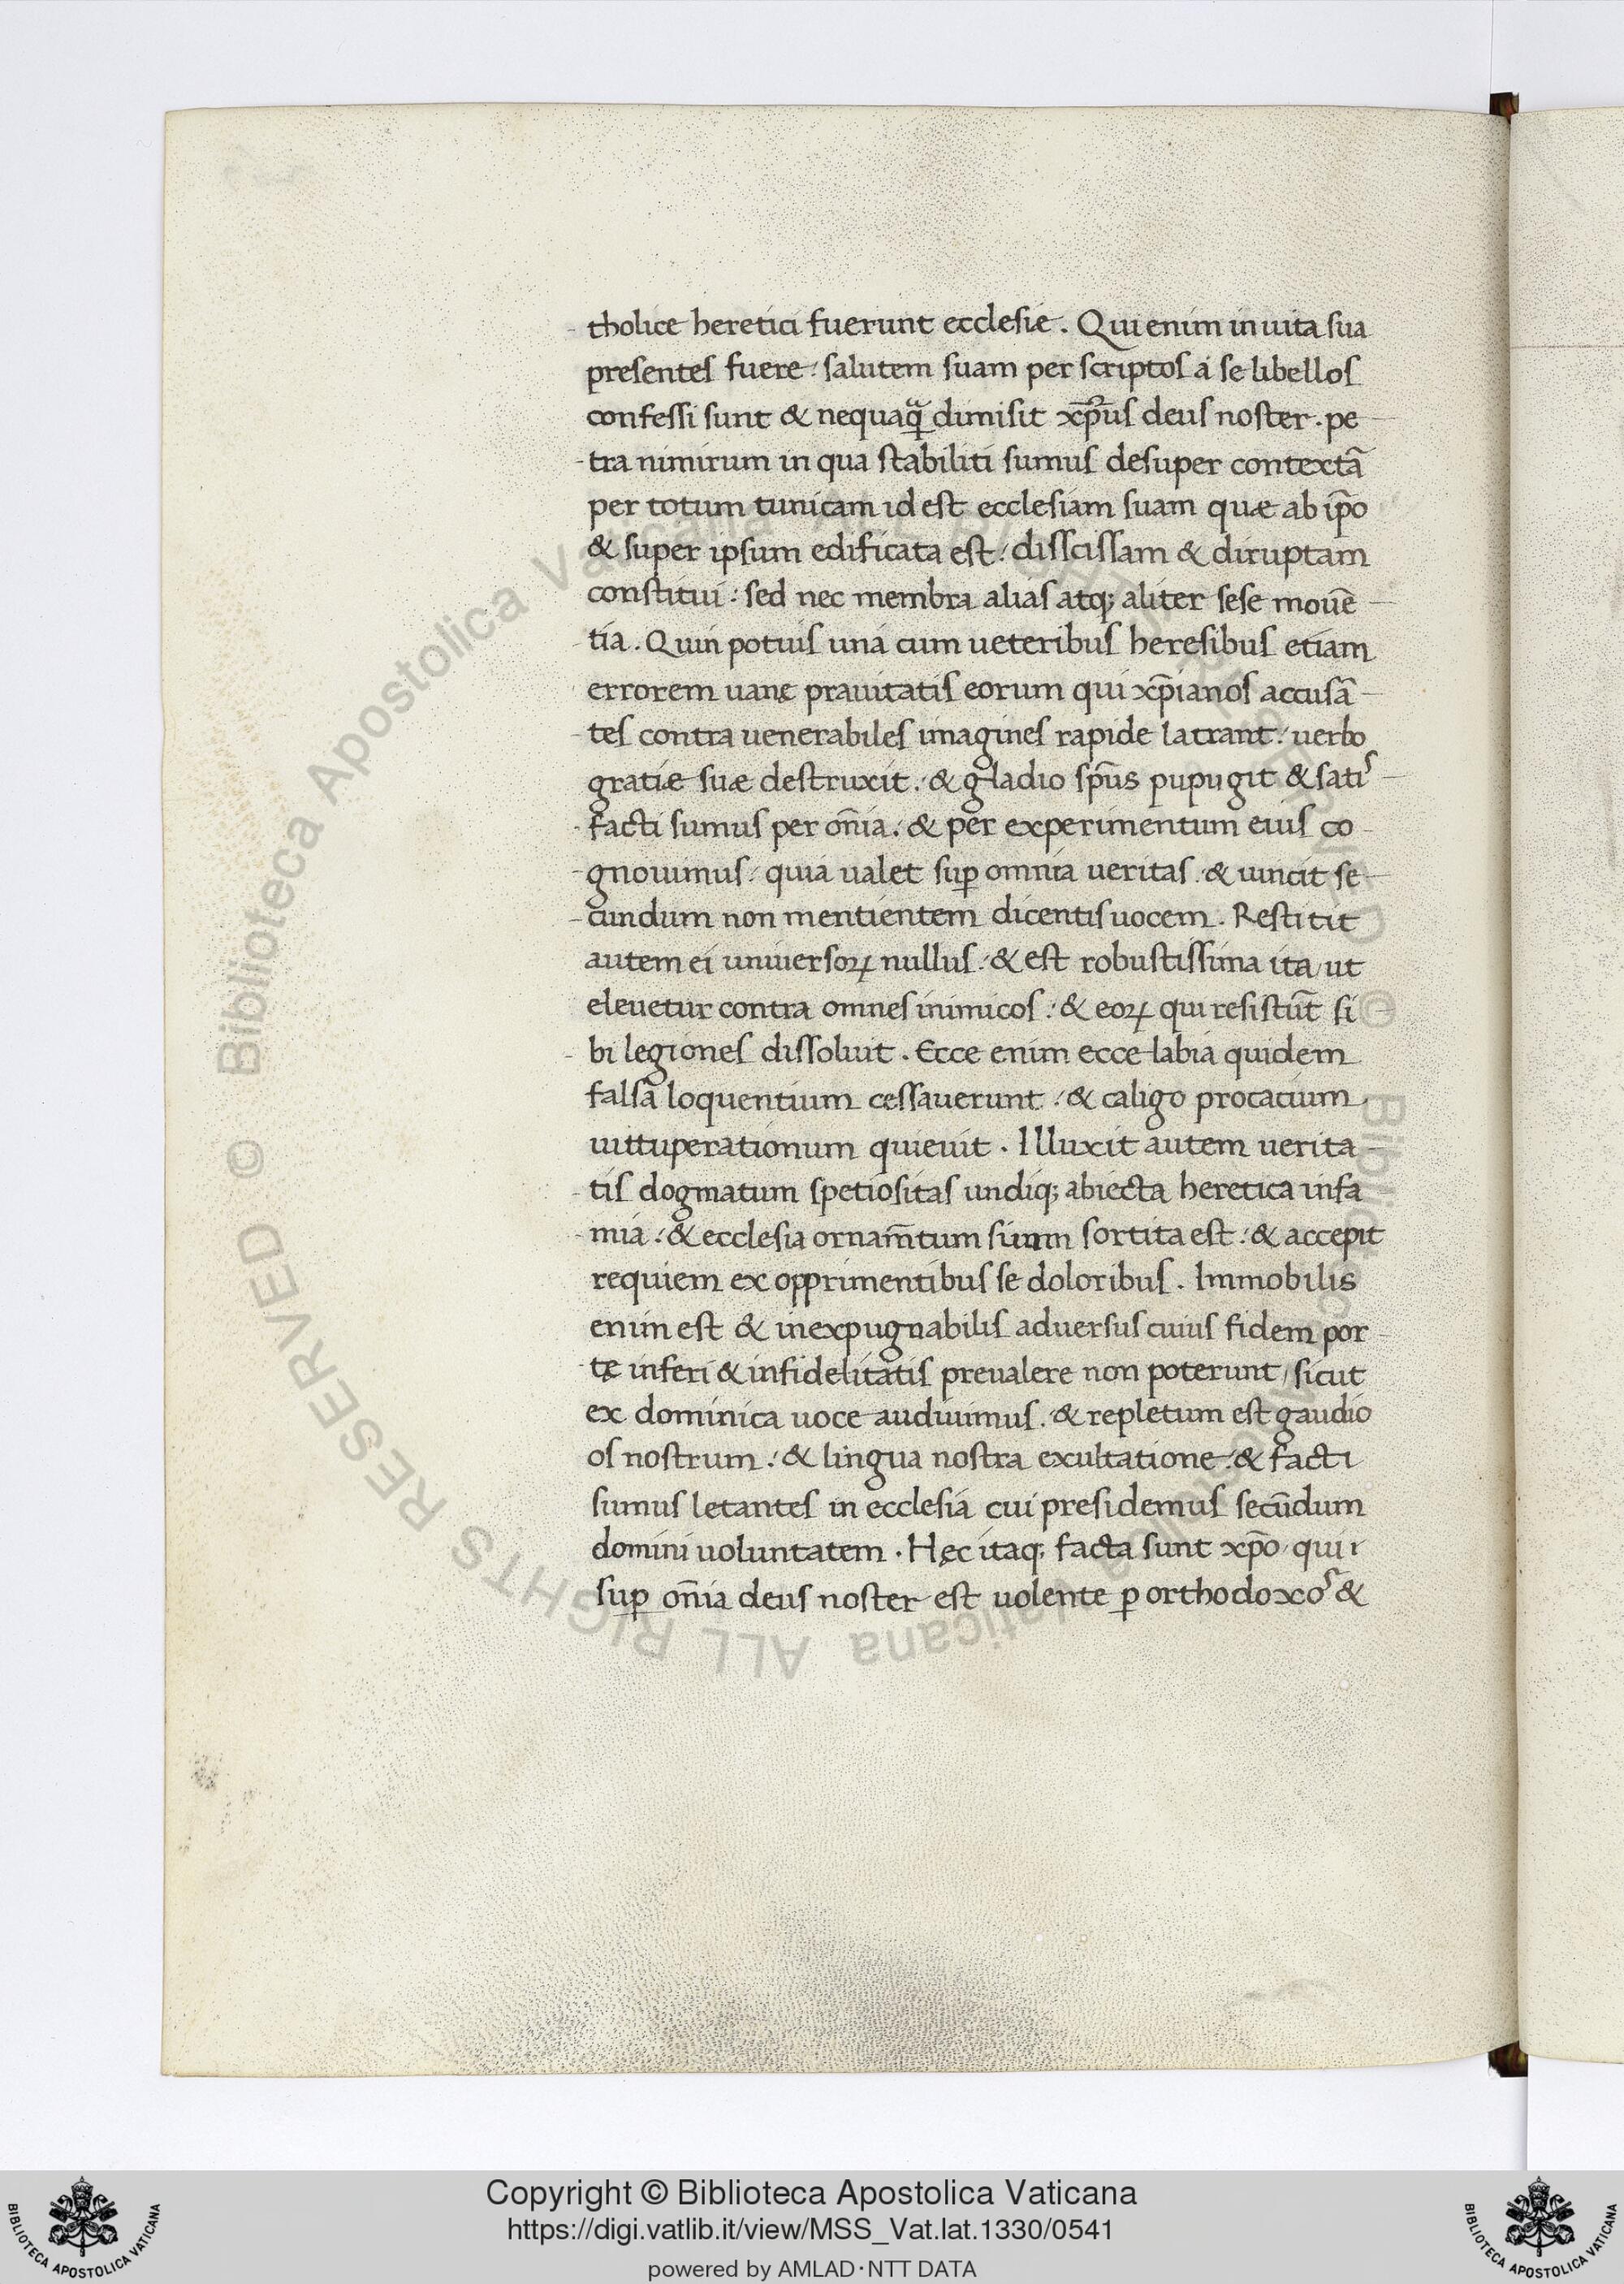 tholice heretici fuerunt ecclesie. Qui enim in uita sua
presentes fuere: salutem suam per scriptos a se libellos
confessi sunt & nequaq̃ dimisit xp̃us deus noster. pe
tra nimirum in qua stabiliti sumus desuper contextã
per totum tunicam id est ecclesiam suam quæ ab ip̃o
& super ipsum edificata est: disscissam & diruptam
constitui: sed nec membra alias atq; aliter sese mouẽ
tia. Quin potuis una cum ueteribus heresibus etiam
errorem uanę prauitatis eorum qui xp̃ianos accusã
tes contra uenerabiles imagines rapide latrant: uerbo
gratiæ suæ destruxit: & gladio sp̃us pupugit & satis
facti sumus per om̃ia: & per experimentum eius co
gnouimus: quia ualet sup̱ omnia ueritas: & uincit se
cundum non mentientem dicentis uocem. Restitit
autem ei uniuersoꝝ nullus: & est robustissima ita ut
eleuetur contra omnes inimicos: & eoꝝ qui resistũt si
bi legiones dissoluit. Ecce enim ecce labia quidem
falsa loquentium cessauerunt: & caligo procacium
uittuperationum quieuit. Illuxit autem uerita
tis dogmatum spetiositas undiq; abiecta heretica infa
mia: & ecclesia ornam̃tum suum sortita est: & accepit
requiem ex opprimentibus se doloribus. Immobilis
enim est & inexpugnabilis aduersus cuius fidem por
tę inferi & infidelitatis preualere non poterunt/ sicut
ex dominica uoce audiuimus: & repletum est gaudio
os nostrum: & lingua nostra exultatione: & facti
sumus letantes in ecclesia cui presidemus secũdum
domini uoluntatem. Hęc itaq; facta sunt xp̃o qui
sup̱ om̃ia deus noster est uolente ꝑ orthodoxos &
Biblioteca Apostolica Vaticana ALL RIGHTS RESERVED © Biblioteca Apostolica Vaticana ALL RIGHTS RESERVED ©
Copyright © Biblioteca Apostolica Vaticana
https://digi.vatlib.it/view/MSS_Vat.lat.1330/0541
powered by AMLAD·NTT DATA
BIBLIOTECA APOSTOLICA VATICANA
BIBLIOTECA APOSTOLICA VATICANA